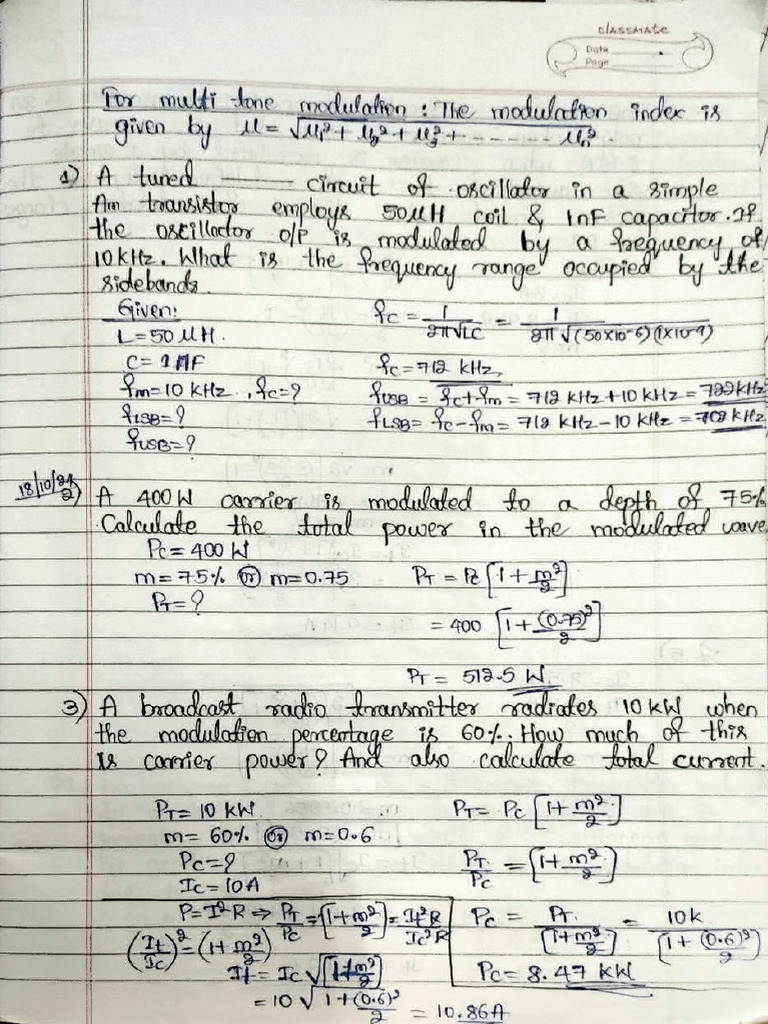 classmate
Date
Page
For multi tone modulation : The modulation index is
given by μ = √μ₁² + μ₂² + μ₃² + ------- μₙ²
1) A tuned circuit of oscillator in a simple
Am transistor employs 50μH coil & 1nF capacitor. If
the oscillator o/p is modulated by a frequency of
10 kHz. What is the frequency range occupied by the
sidebands.
Given:
L = 50 μH.
C = 1 nF
fm = 10 kHz., fc = ?
fLSB = ?
fUSB = ?
fc = 1/2π√LC = 1/2π√(50×10⁻⁶)(1×10⁻⁹)
fc = 712 kHz,
fUSB = fc + fm = 712 kHz + 10 kHz = 722 kHz
fLSB = fc - fm = 712 kHz - 10 kHz = 702 kHz
18/10/24
2) A 400 W carrier is modulated to a depth of 75%
Calculate the total power in the modulated wave
Pc = 400 W
m = 75% or m = 0.75
PT = ?
PT = Pc [1 + m²/2]
= 400 [1 + (0.75)²/2]
PT = 512.5 W.
3) A broadcast radio transmitter radiates 10 kW when
the modulation percentage is 60%. How much of this
is carrier power? And also calculate total current.
PT = 10 kW
m = 60% or m = 0.6
Pc = ?
Ic = 10 A
PT = Pc [1 + m²/2]
PT/Pc = [1 + m²/2]
P = I²R ⇒ PT/Pc = [1 + m²/2] = It²R/Ic²R
(It/Ic)² = (1 + m²/2)
It = Ic √[1 + m²/2]
= 10 √1 + (0.6)²/2 = 10.86A
Pc = PT/[1 + m²/2] = 10k/[1 + (0.6)²/2]
Pc = 8.47 kW